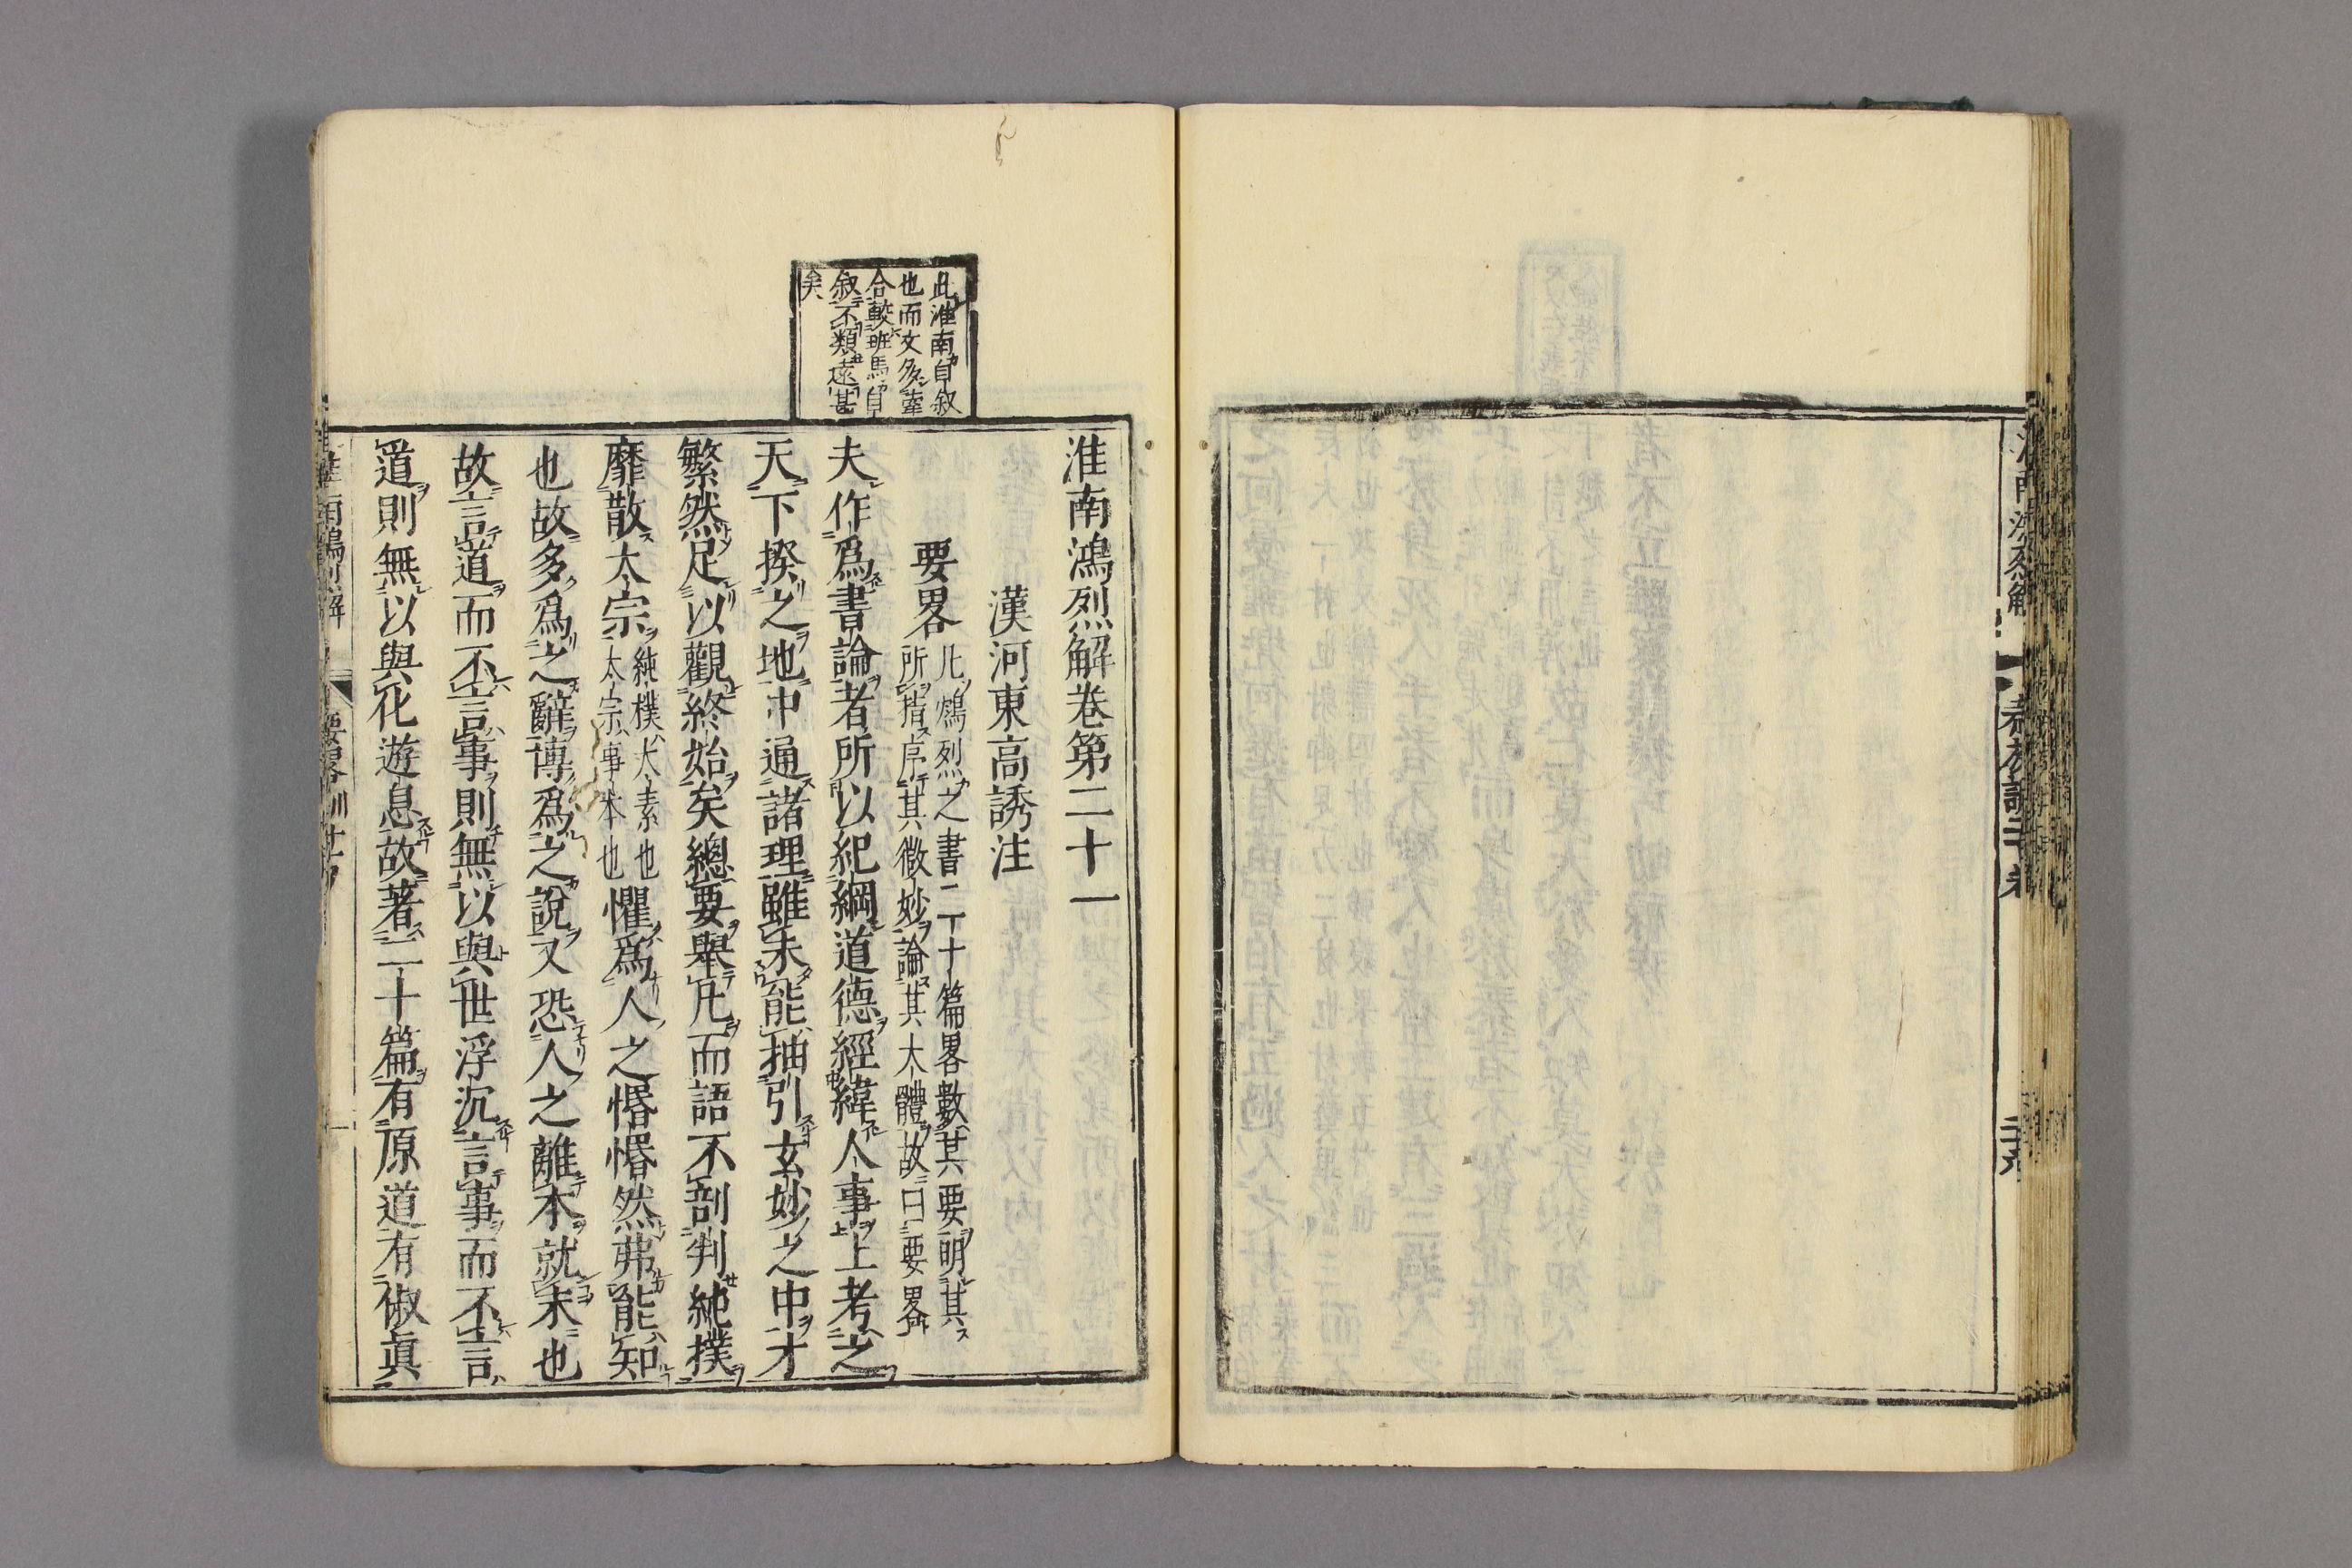 淮南鴻烈解卷第二十一
漢河東高誘注
要畧
凡鴻烈之書二十篇畧數其要明其
所指序其微妙論其大體故曰要畧
夫作爲書論者所以紀綱道德經緯人事上考之
天下揆之地中通諸理雖未能抽引玄妙之中才
繁然足以觀終始矣總要舉凡而語不剖判純樸
靡散大宗
純樸大素也
太宗事本也
懼爲人之惛惛然弗能知
也故多爲之辭博爲之說又恐人之離本就末也
故言道而不言事則無以與世浮沉言事而不言
道則無以與化遊息故著二十篇有原道有俶眞
此淮南自叙
也而文多牽
合較班馬自
叙不類遠甚
矣